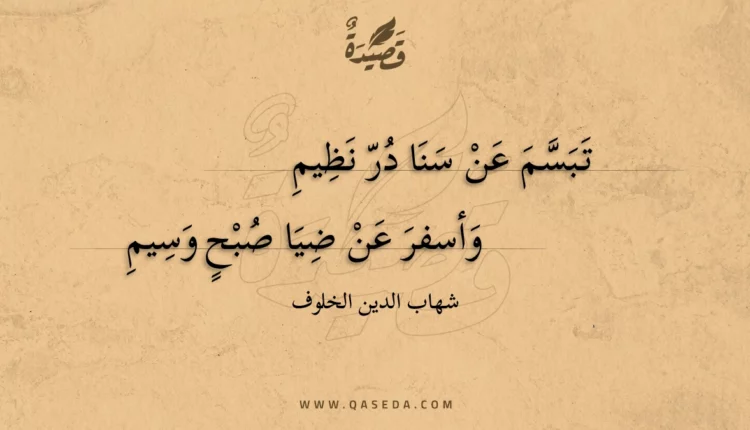 قَصِيْدَةٌ
تَبَسَّمَ عَنْ سَنَا دُرّ نَظِيمِ
وَأسفرَ عَنْ ضِيَا صُبْحٍ وَسِيمِ
شهاب الدين الخلوف
WWW.QASEDA.COM